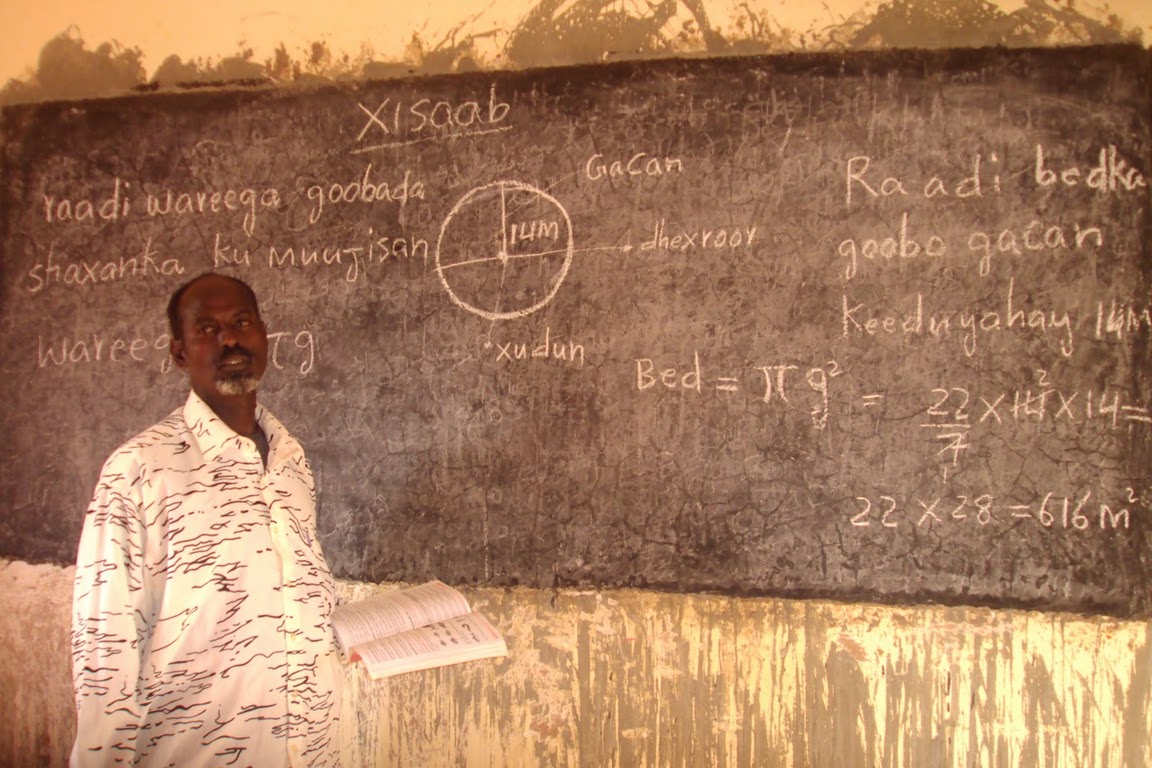 Xisaab
raadi wareega goobada
shaxanka ku muujisan
wareeg πg
Gacan
14M
dhexroor
xudun
Raadi bedka
goobo gacan
Keeduyahay 14M
Bed = πg² = 22/7 X 14 2 X 14 =
1
22 X 28 = 616 M²